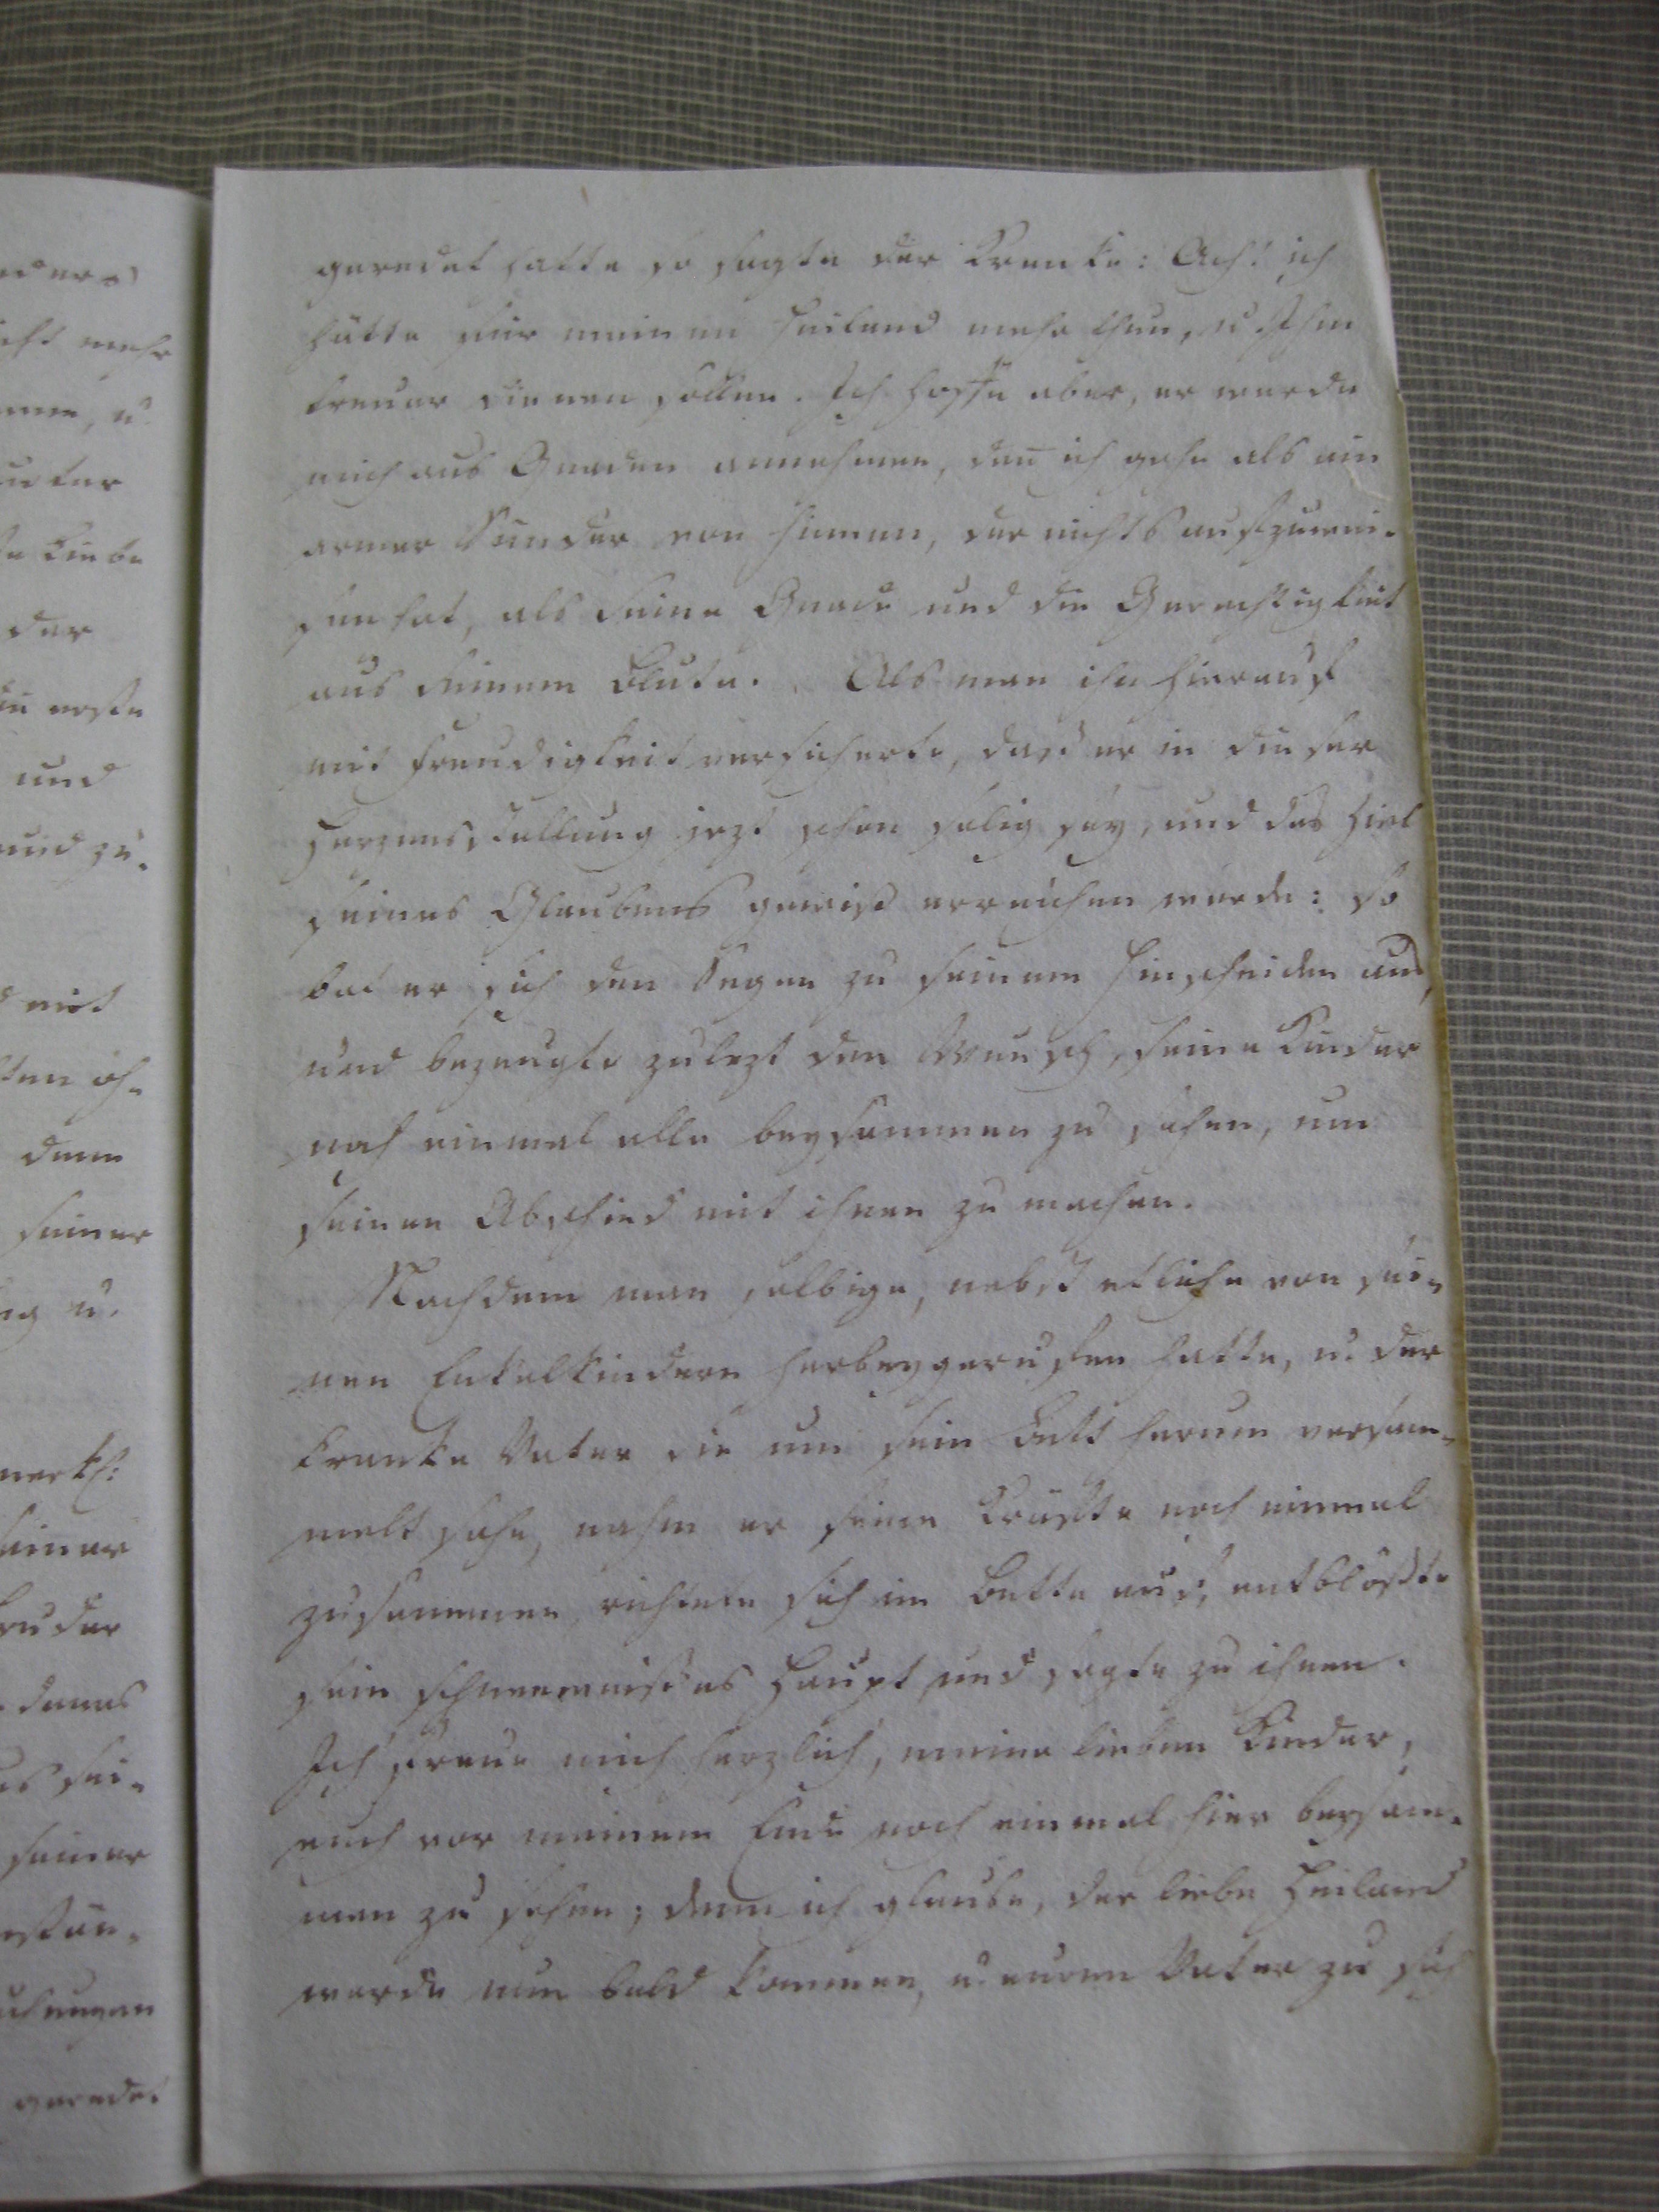 geredet hatte so sagte der Kranke: Ach! ich
hätte für meinen Heiland mehr thun, u. Ihm
treuer dienen sollen. Ich hoffe aber, er werde
mich aus Gnaden annehmen, den̄ ich gehe als ein
armer Sünder von hinnen, der nichts aufzuwei-
sen hat, als seine Gnade und die Gerechtigkeit
aus seinem Blute. Als man ihn hierauf
mit Freudigkeit versicherte, dass er in dieser
Herzensstellung jezt schon selig sey, und das Ziel
seines Glaubens gewiss erreichen würde: so
bat er sich den Segen zu seinem Hinscheiden aus,
und bezeugte zulezt den Wunsch, seine Kinder
noch einmal alle beysammen zu sehen, um
seinen Abschied mit ihnen zu machen.
Nachdem man selbige, nebst etliche von sei-
nen Enkelkindern herbeygerufen hatte, u. der
kranke Vater sie um sein Bett herum versam-
melt sahe, nahm er seine Kräfte noch einmal
zusammen, richtete sich im Bette auf, entblösste
sein schneeweisses Haupt und sagte zu ihnen.
Ich freue mich herzlich, meine lieben Kinder,
euch vor meinem Ende noch einmal hier beysam-
men zu sehen; denn ich glaube, der liebe Heiland
werde nun bald kommen, u. euren Vater zu sich